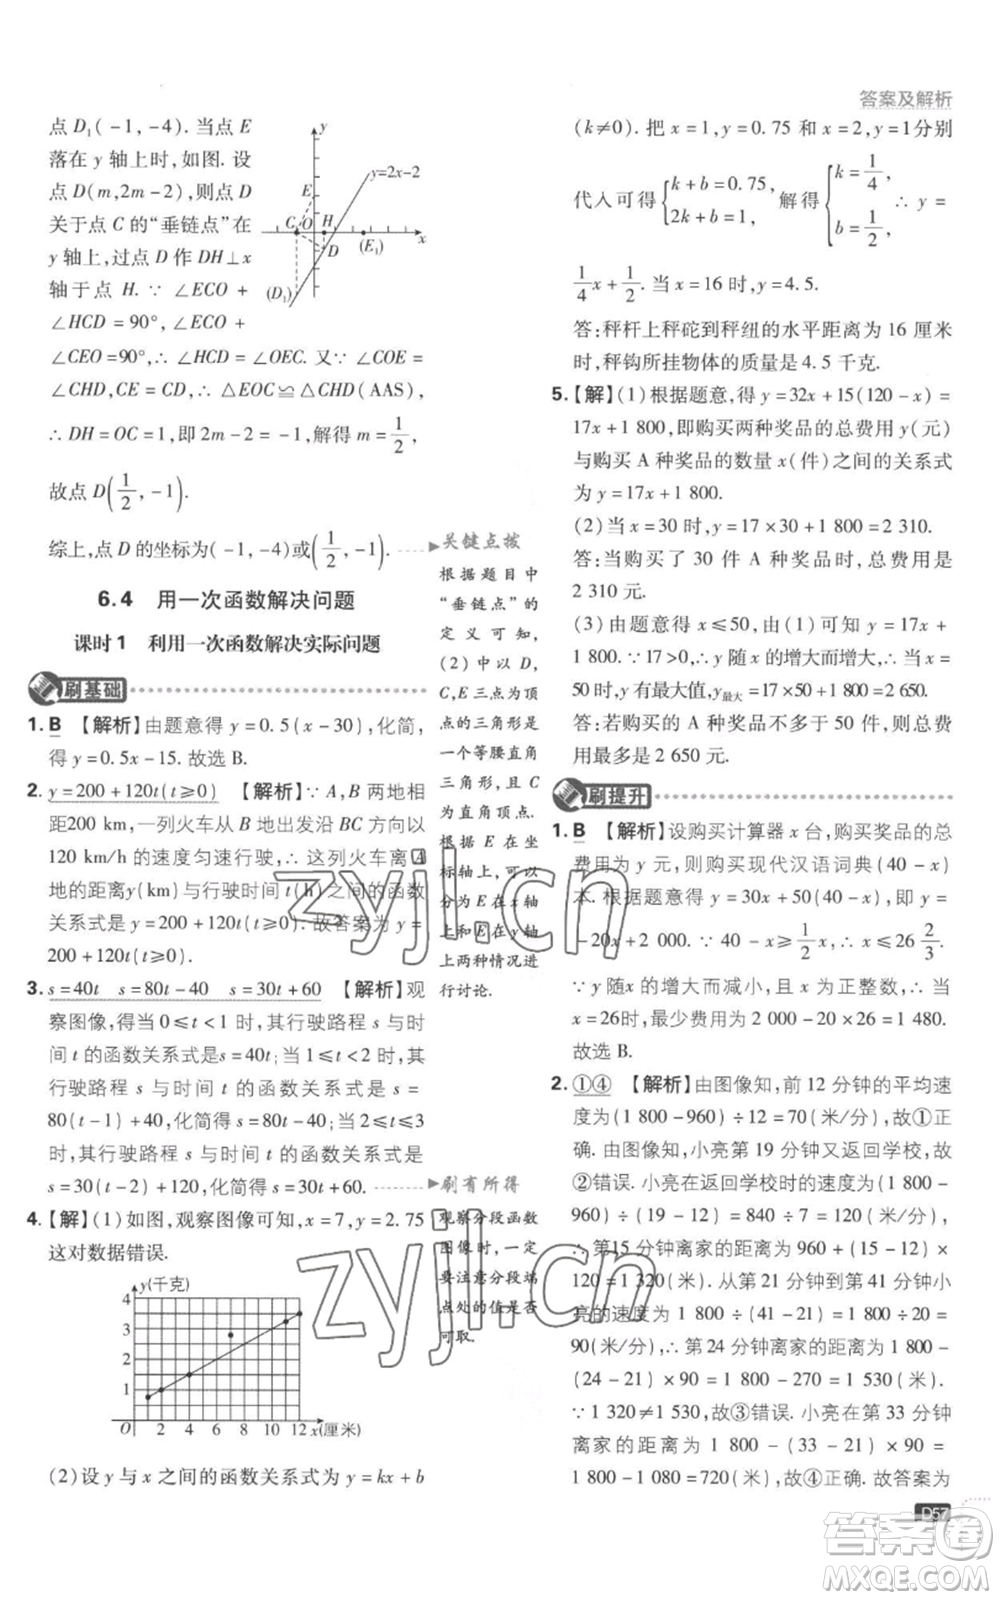 答案及解析
点 D₁(-1,-4). 当点 E
落在 y 轴上时,如图. 设
点 D(m,2m-2),则点 D
关于点 C 的“垂链点”在
y 轴上,过点 D 作 DH⊥x
轴于点 H. ∵ ∠ECO +
∠HCD = 90°, ∠ECO +
∠CEO=90°,∴ ∠HCD = ∠OEC. 又∵ ∠COE =
∠CHD,CE = CD,∴ △EOC≌△CHD(AAS),
∴ DH=OC=1,即 2m-2=-1,解得 m=1/2,
故点 D(1/2,-1).
综上,点 D 的坐标为(-1,-4)或(1/2,-1).
y
y=2x-2
E
C O H
D (E₁) x
(D₁)
6.4 用一次函数解决问题
课时1 利用一次函数解决实际问题
刷基础
1. B 【解析】由题意得 y=0.5(x-30),化简,
得 y=0.5x-15. 故选 B.
2. y=200+120t(t≥0) 【解析】∵ A,B 两地
相距200 km,一列火车从 B 地出发沿 BC 方向以
120 km/h 的速度匀速行驶,∴ 这列火车离 A
地的路程 y(km)与行驶时间 t(h)之间的函数
关系式是 y=200+120t(t≥0). 故答案为 y=
200+120t(t≥0).
3. s=40t s=80t-40 s=30t+60 【解析】观
察图像,得当 0≤t<1 时,其行驶路程 s 与时
间 t 的函数关系式是 s=40t;当 1≤t<2 时,其
行驶路程 s 与时间 t 的函数关系式是 s =
80(t-1)+40,化简得 s=80t-40;当 2≤t≤3
时,其行驶路程 s 与时间 t 的函数关系式是
s=30(t-2)+120,化简得 s=30t+60.
4. 【解】(1)如图,观察图像可知,x=7,y=2.75
这对数据错误.
y(千克)
4
3
2
1
O 2 4 6 8 10 12 x(厘米)
(2)设 y 与 x 之间的函数关系式为 y=kx+b
关键点拨
根据题目中
“垂链点”的
定义可知,
(2)中以 D,
C,E三点为顶
点的三角形是
一个等腰直角
三角形,且 C
为直角顶点.
根据 E 在坐
标轴上,可以
分为 E 在 x轴
上和 E 在 y 轴
上两种情况进
行讨论.
刷有所得
观察分段函数
图像时,一定
要注意分段端
点处的值是否
可取.
(k≠0). 把 x=1,y=0.75 和 x=2,y=1分别
代入可得{k+b=0.75, 2k+b=1, 解得{k=1/4, b=1/2, ∴ y =
1/4x+1/2. 当 x=16 时,y=4.5.
答:秤杆上秤砣到秤纽的水平距离为 16 厘米
时,秤钩所挂物体的质量是 4.5 千克.
5. 【解】(1)根据题意,得 y=32x+15(120-x)=
17x+1 800,即购买两种奖品的总费用 y(元)
与购买 A 种奖品的数量 x(件)之间的关系式
为 y=17x+1 800.
(2)当 x=30 时,y=17×30+1 800=2 310.
答:当购买了 30 件 A 种奖品时,总费用是
2 310 元.
(3)由题意得 x≤50,由(1)可知 y=17x+
1 800. ∵ 17>0,∴ y 随 x 的增大而增大,∴ 当 x=50 时,
y 有最大值,y最大=17×50+1 800=2 650.
答:若购买的 A 种奖品不多于 50 件,则总费
用最多是 2 650 元.
刷提升
1. B 【解析】设购买计算器 x 台,购买奖品的总
费用为 y 元,则购买现代汉语词典(40-x)
本. 根据题意得 y=30x+50(40-x),即 y=
-20x+2 000. ∵ 40-x≥1/2x,∴ x≤26 2/3.
∵ y 随 x 的增大而减小,且 x 为整数,∴ 当
x=26时,最少费用为 2 000-20×26=1 480.
故选 B.
2. ①④ 【解析】由图像知,前 12 分钟的平均速
度为(1 800-960)÷12=70(米/分),故①正
确. 由图像知,小亮第 19 分钟又返回学校,故
②错误. 小亮在返回学校时的速度为(1 800-
960)÷(19-12)=840÷7=120(米/分),
∴ 第15 分钟离家的距离为 960+(15-12)×
120=1 320(米). 从第 21 分钟到第 41 分钟小
亮的速度为 1 800÷(41-21)=1 800÷20=
90(米/分),∴ 第 24 分钟离家的距离为 1 800-
(24-21)×90=1 800-270=1 530(米).
∵ 1 320≠1 530,故③错误. 小亮在第 33 分钟
离家的距离为 1 800-(33-21)×90=
1 800-1 080=720(米),故④正确. 故答案为
D57
zyjl.cn
zyjl.cn
答案圈
MXQE.COM